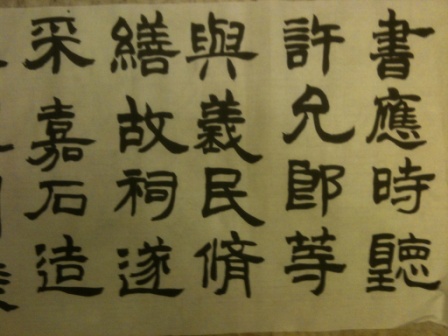 書應時聽
許允郎等
與義民脩
繕故祠遂
采嘉石造